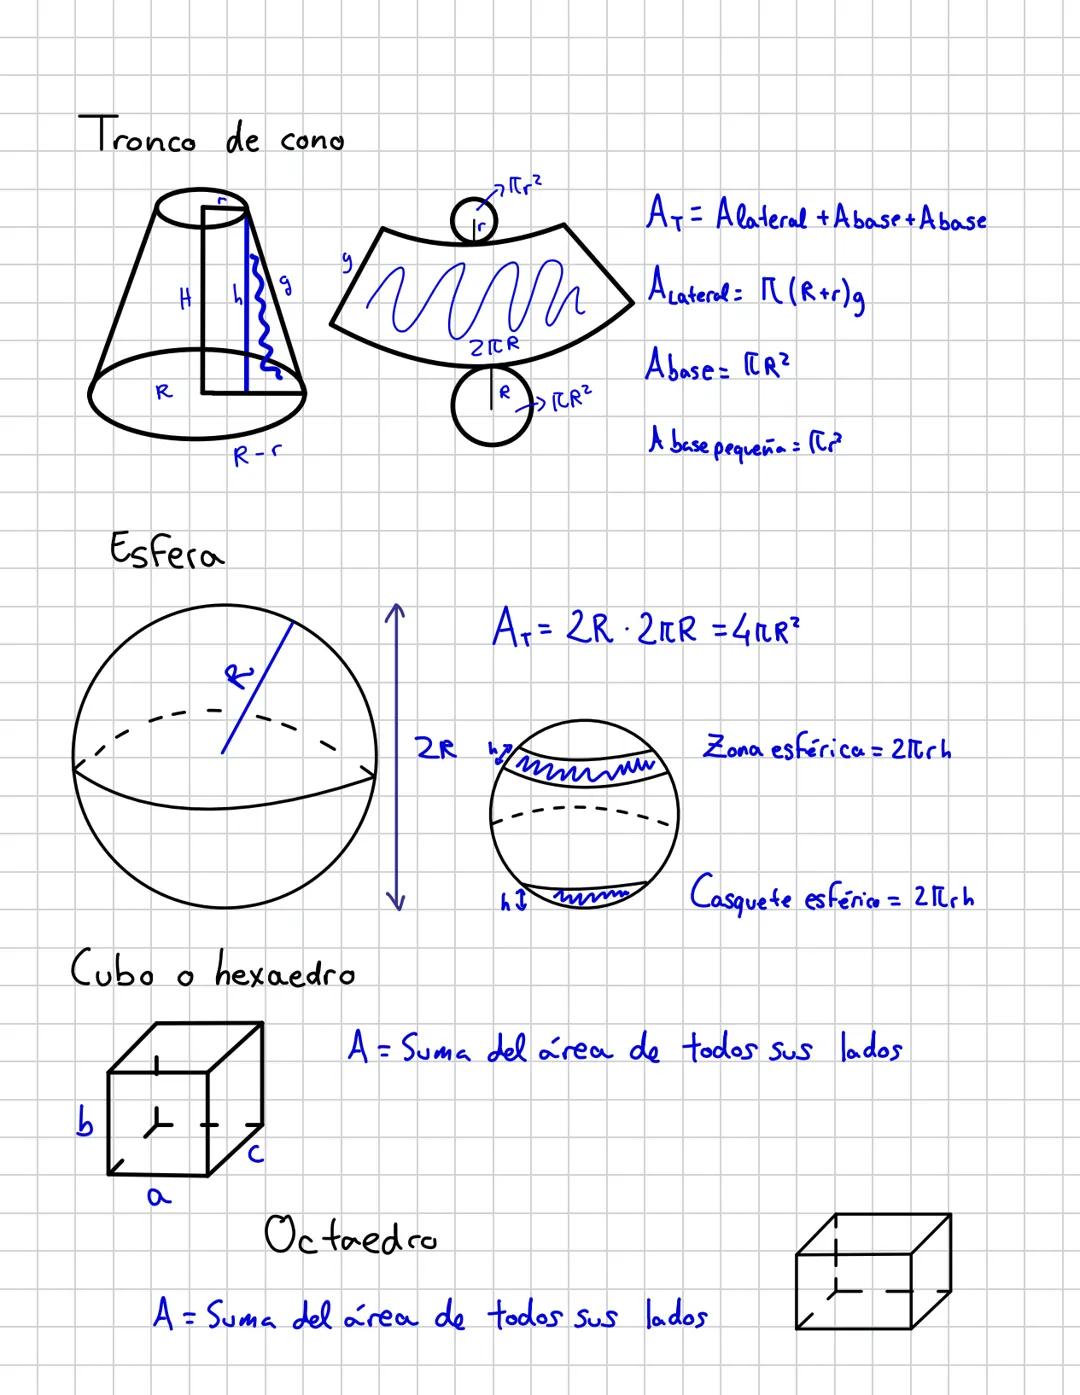 Tronco de cono
r
H
h
g
R
R-r
g
πr²
r
2πR
R
πR²
A_T = Alateral + Abase + Abase
A Lateral = π(R+r)g
Abase = πR²
A base pequeña = πr²
Esfera
R
2R
A_T = 2R · 2πR = 4πR²
h
Zona esférica = 2πrh
h
Casquete esférico = 2πrh
Cubo o hexaedro
b
a
c
A = Suma del área de todos sus lados
Octaedro
A = Suma del área de todos sus lados